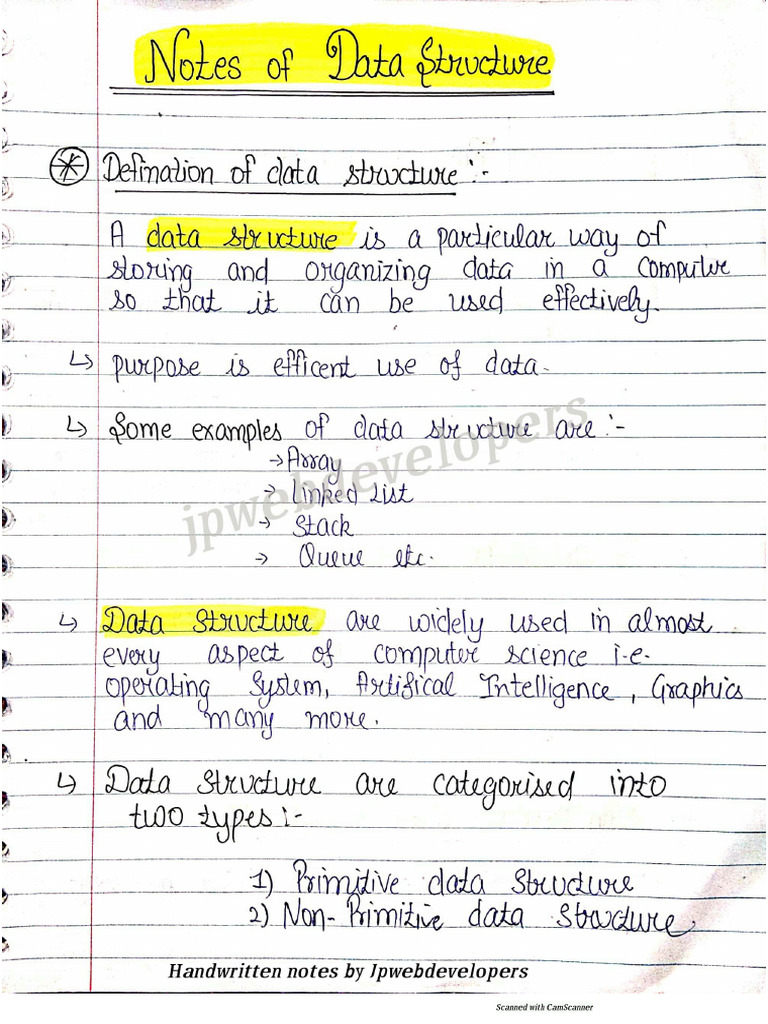 Notes of Data Structure
Defination of data structure :-
A data structure is a particular way of
storing and organizing data in a computer
so that it can be used effectively.
↳ purpose is efficent use of data.
↳ Some examples of data structure are :-
→ Array
→ Linked List
→ Stack
→ Queue etc.
jpwebdevelopers
↳ Data structure are widely used in almost
every aspect of computer science i.e.
operating System, Artifical Intelligence, Graphics
and many more.
↳ Data structure are categorised into
two types :-
1) Primitive data structure
2) Non-Primitive data structure
Handwritten notes by Jpwebdevelopers
Scanned with CamScanner